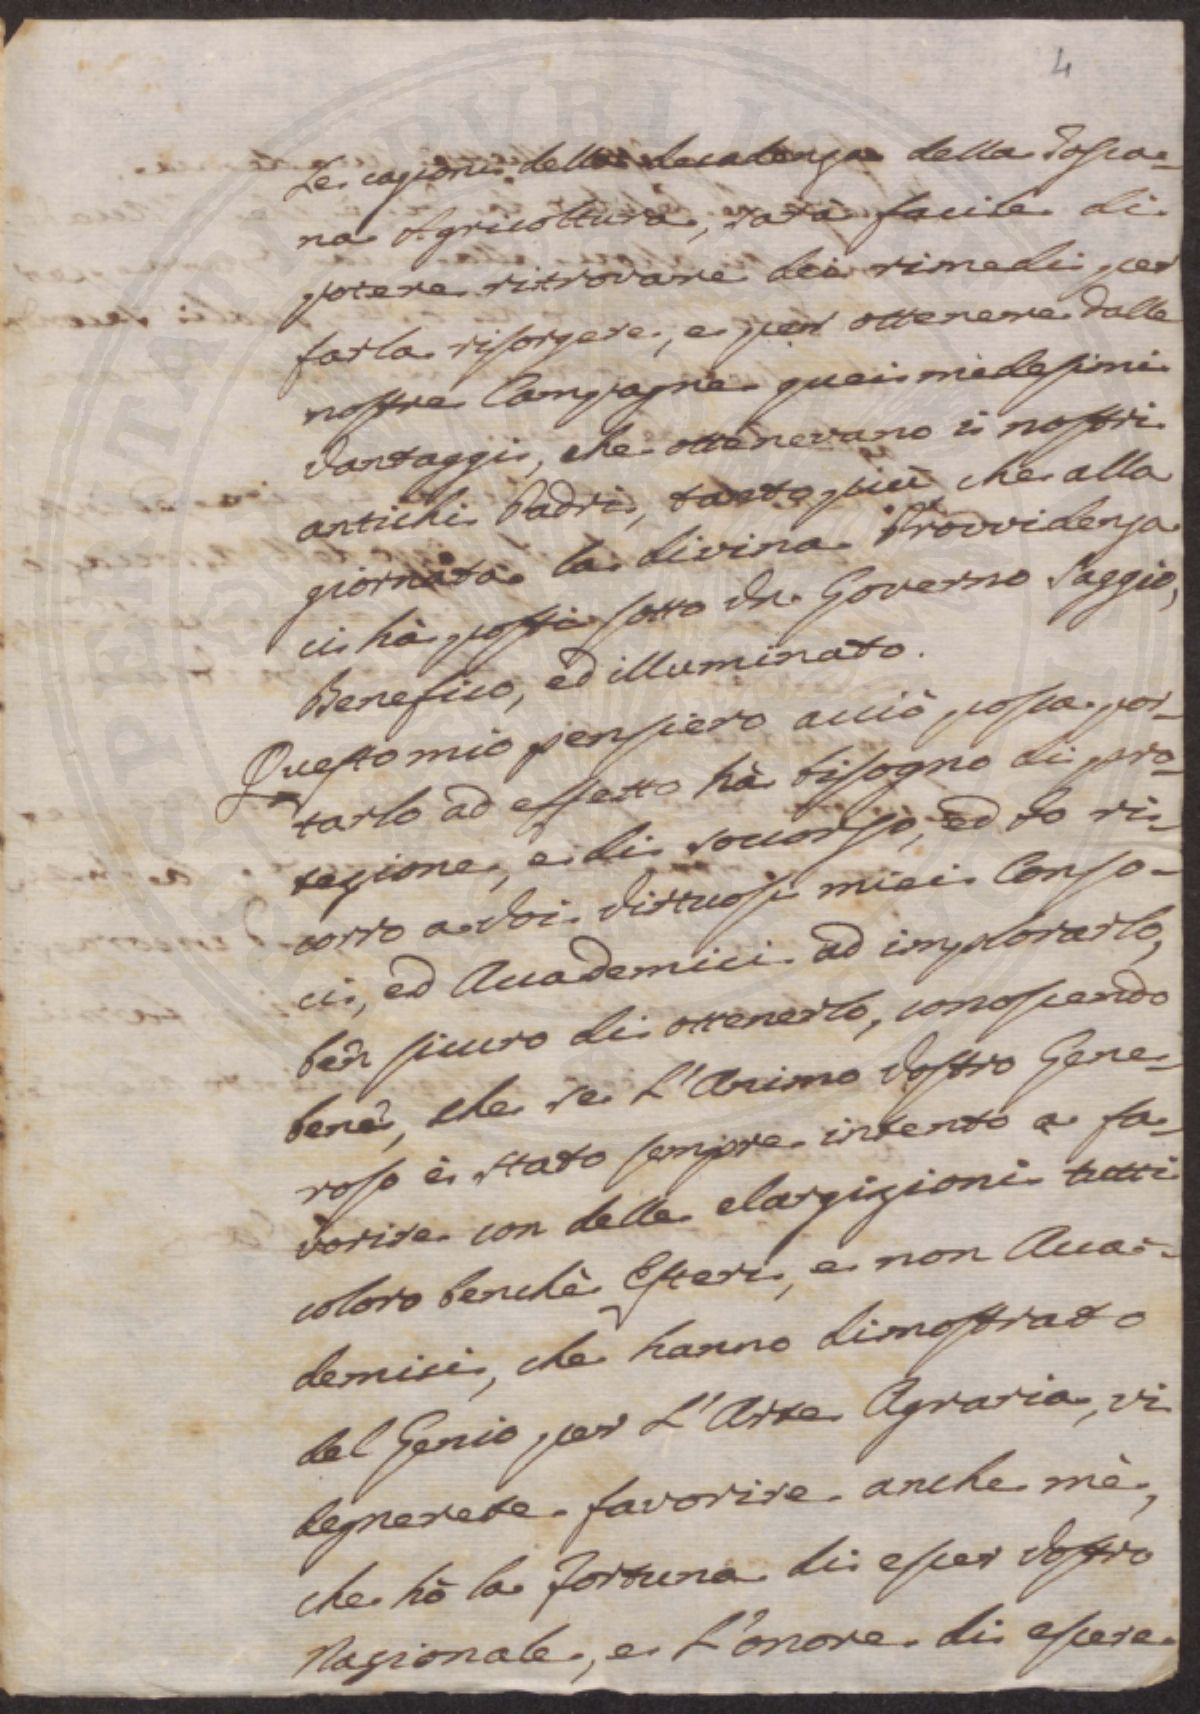 4
Le cagioni della decadenza della Tosca-
na Agricoltura, sarà facile di
potere ritrovare dei rimedi per
farla risorgere, e per ottenere dalle
nostre Campagne quei medesimi
vantaggi, che ottenevano i nostri
antichi Padri, tanto più che alla
giornata la divina Provvidenza
ci hà posti sotto un Governo Saggio,
Benefico, ed illuminato.
Questo mio pensiero acciò possa por-
tarlo ad effetto hà bisogno di pro-
tezione, e di soccorso, ed Io ri-
corro a Voi Virtuosi miei Conso-
ci, ed Accademici ad implorarlo,
ben sicuro di ottenerlo, conoscendo
bene, che se L'Animo Vostro Gene-
roso è stato sempre intento a fa-
vorire con delle elargizioni tutti
coloro benchè Esteri, e non Acca-
demici, che hanno dimostrato
del Genio per L'Arte Agraria, vi
degnerete favorire anche mè,
che hò la Fortuna di esser Vostro
Nazionale, e L'onore di essere